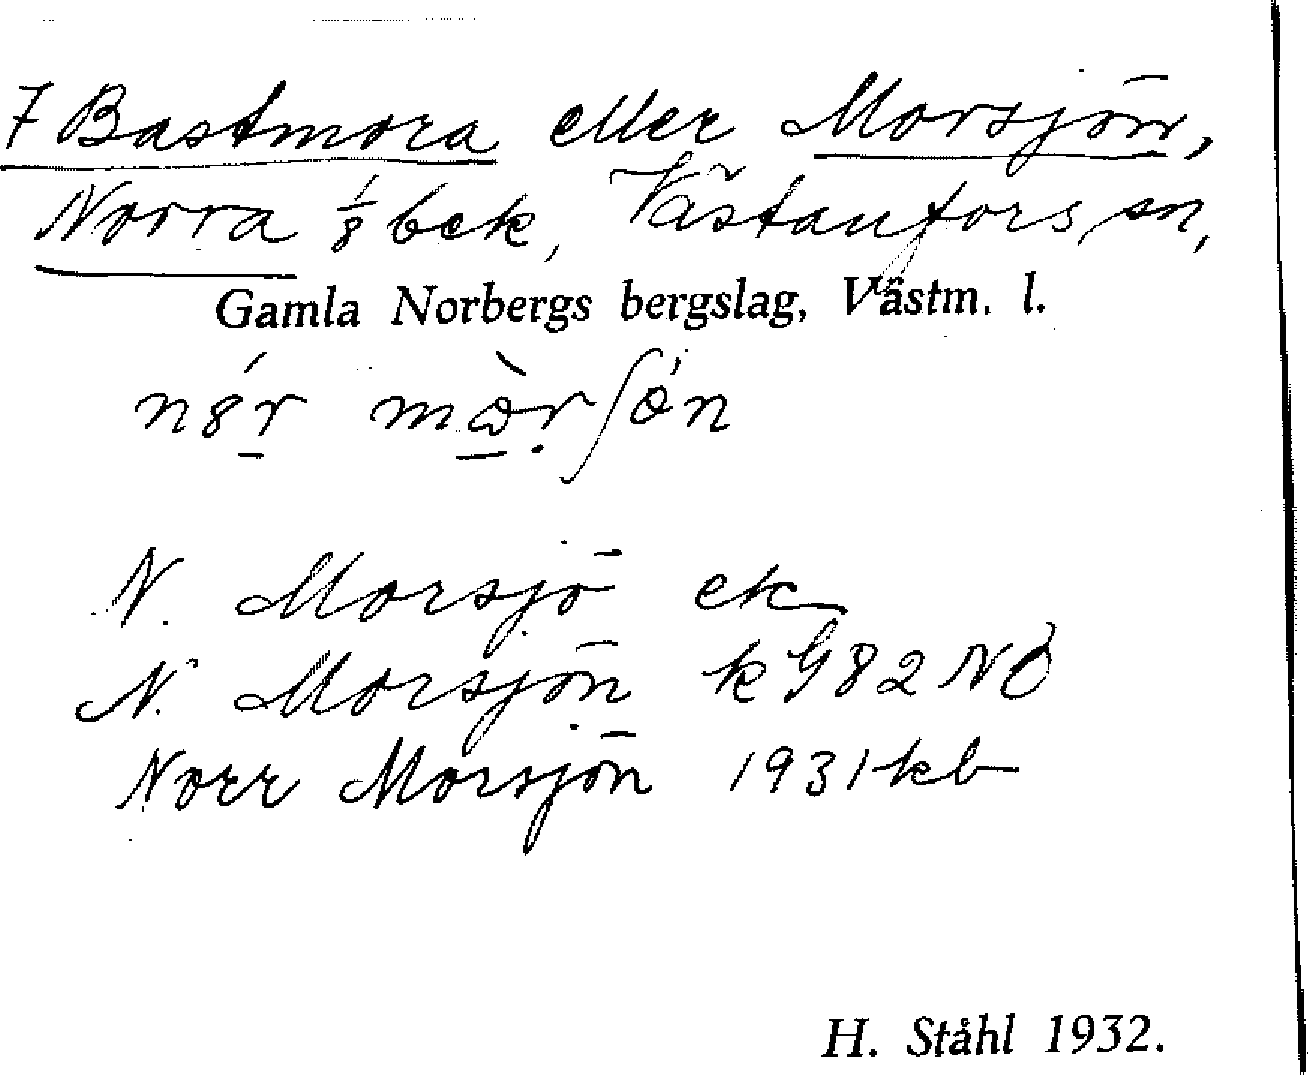 7 Bastmora eller Morsjön,
Norra 1/8 bek, Västanfors sn,
Gamla Norbergs bergslag, Västm. l.
N. Morsjö ek
N. Morsjön k G82 NO
Norr Morsjön 1931 kb
H. Ståhl 1932.